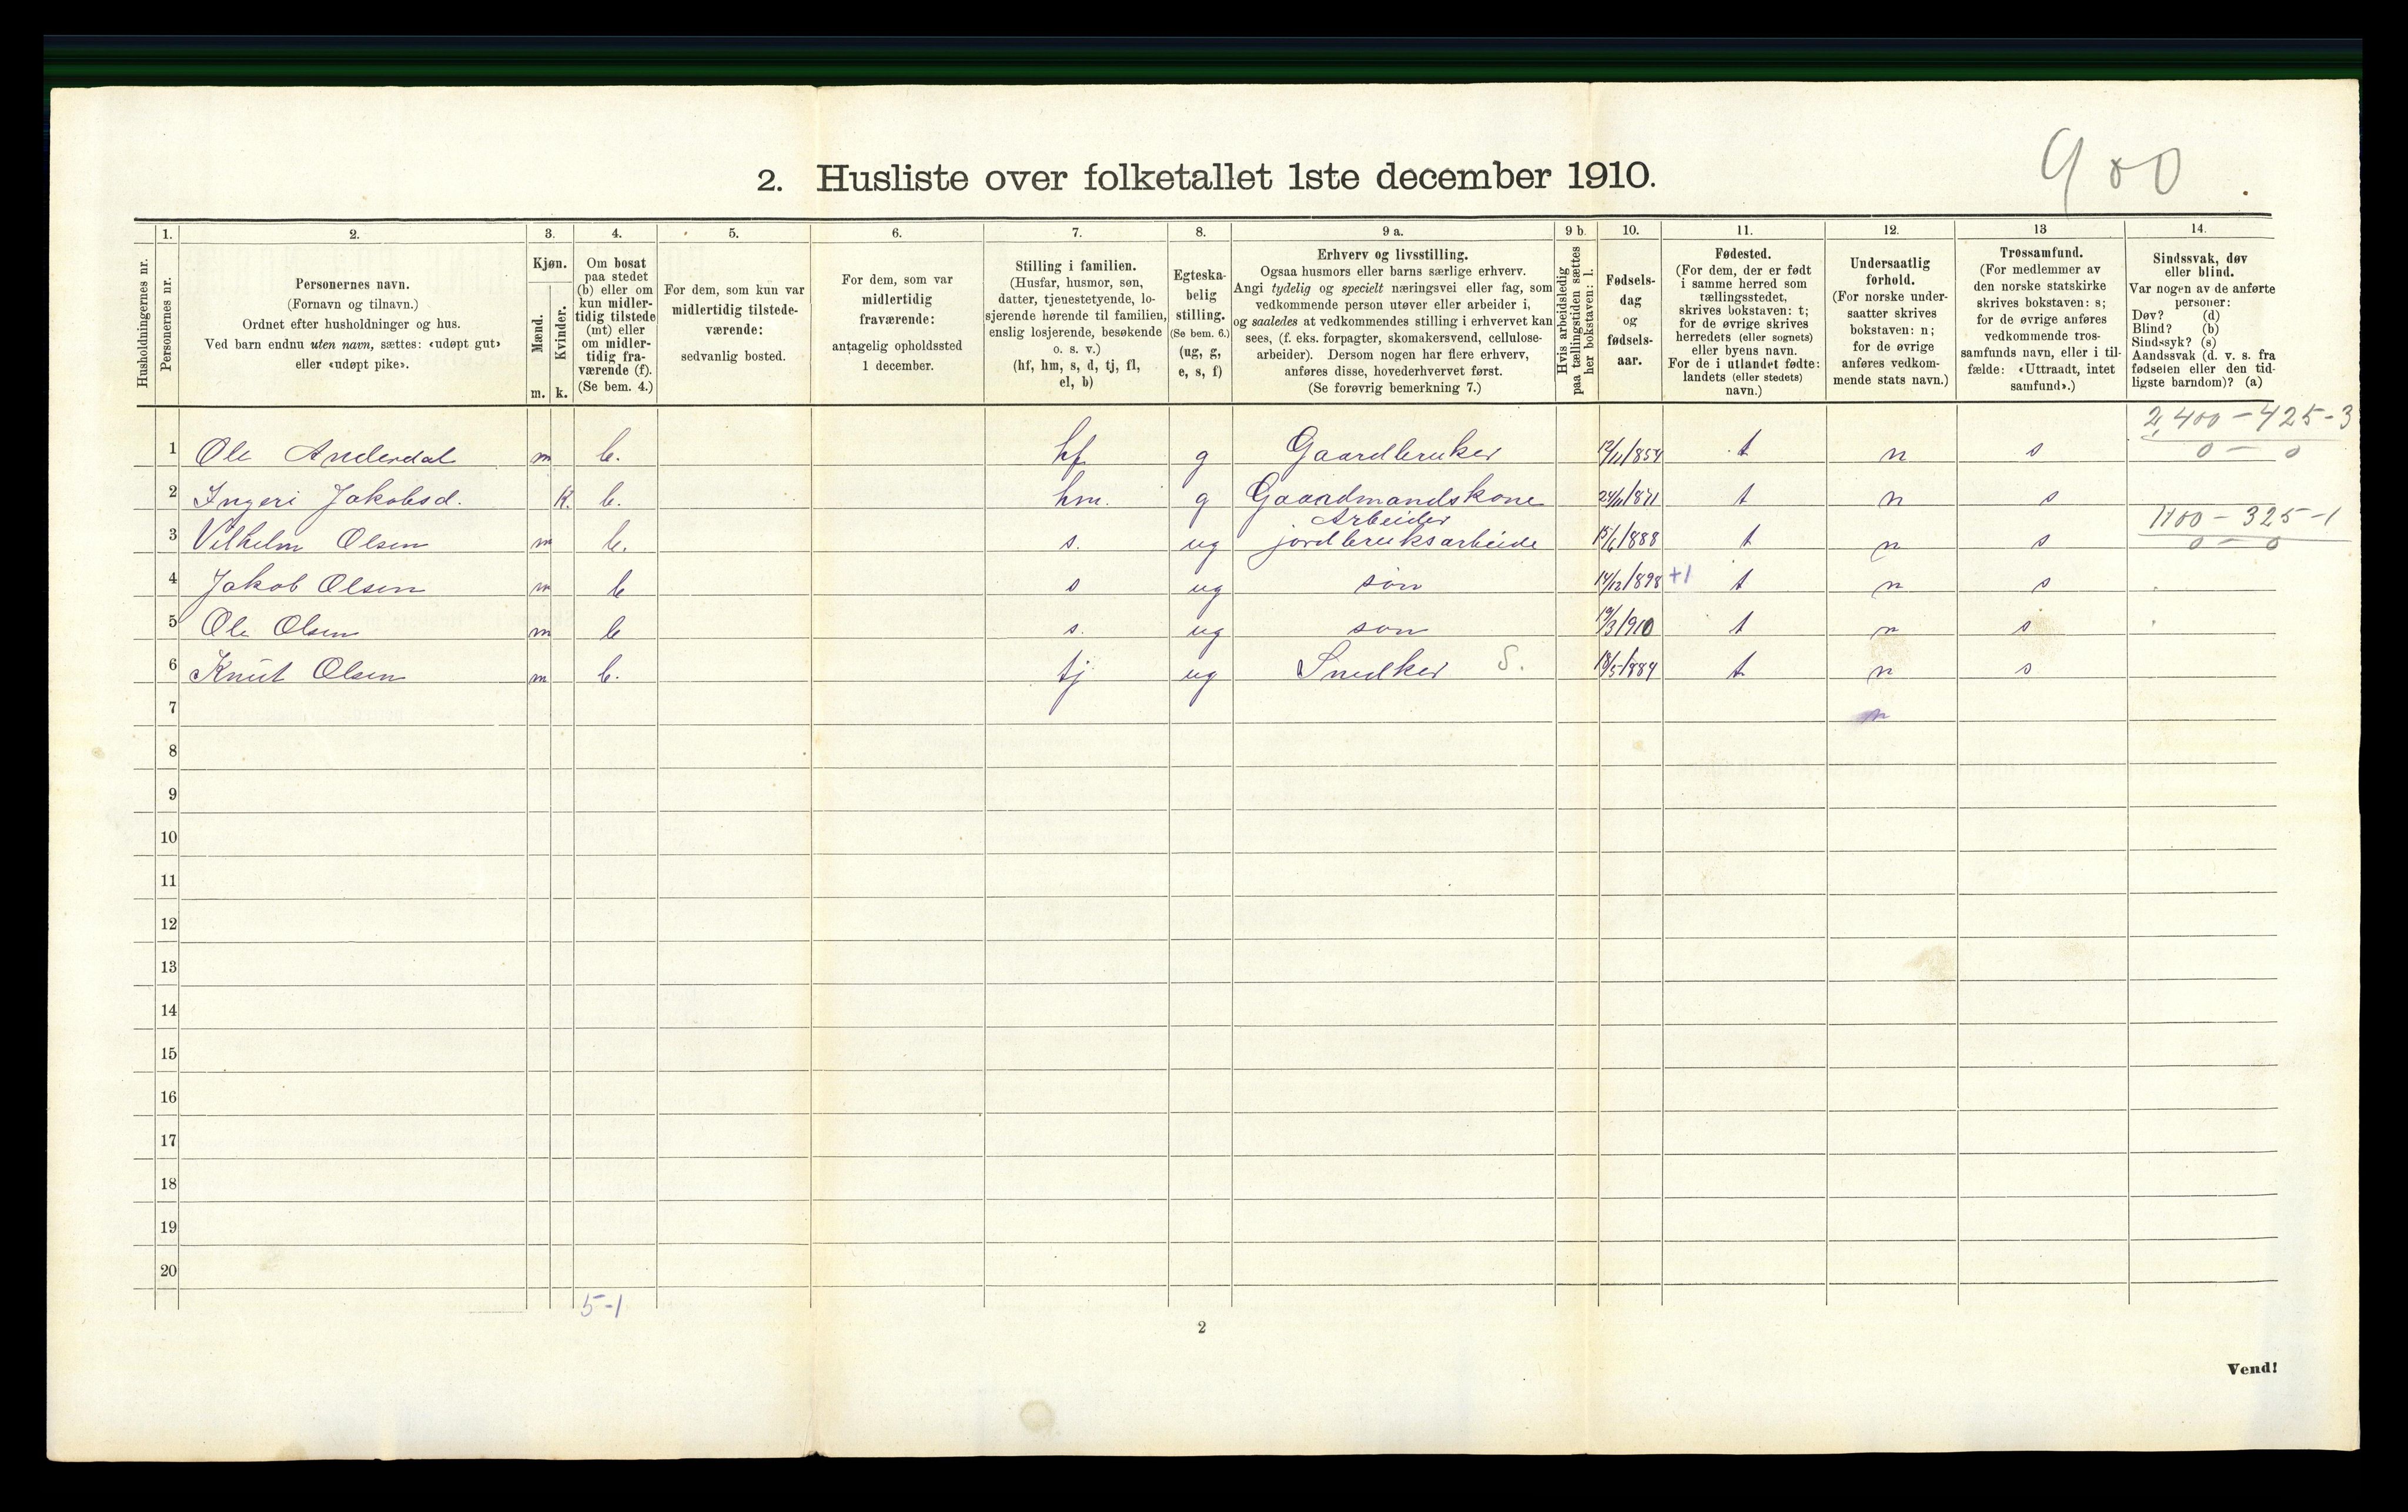 900
2. Husliste over folketallet 1ste december 1910.
Husholdningernes nr.
1. Personernes nr.
2. Personernes navn.
(Fornavn og tilnavn.)
Ordnet efter husholdninger og hus.
Ved barn endnu uten navn, sættes: «udøpt gut»
eller «udøpt pike».
3. Kjøn.
Mænd. Kvinder.
m. k.
4. Om bosat
paa stedet
(b) eller om
kun midler-
tidig tilstede
(mt) eller
om midler-
tidig fra-
værende (f).
(Se bem. 4.)
5. For dem, som kun var
midlertidig tilstede-
værende:
sedvanlig bosted.
6. For dem, som var
midlertidig
fraværende:
antagelig opholdssted
1 december.
7. Stilling i familien.
(Husfar, husmor, søn,
datter, tjenestetyende, lo-
sjerende hørende til familien,
enslig losjerende, besøkende
o. s. v.)
(hf, hm, s, d, tj, fl,
el, b)
8. Egteska-
belig
stilling.
(Se bem. 6.)
(ug, g,
e, s, f)
9 a. Erhverv og livsstilling.
Ogsaa husmors eller barns særlige erhverv.
Angi tydelig og specielt næringsvei eller fag, som
vedkommende person utøver eller arbeider i,
og saaledes at vedkommendes stilling i erhvervet kan
sees, (f. eks. forpagter, skomakersvend, cellulose-
arbeider). Dersom nogen har flere erhverv,
anføres disse, hovederhvervet først.
(Se forøvrig bemerkning 7.)
9 b. Hvis arbeidsledig
paa tællingstiden sættes
her bokstaven: l.
10. Fødsels-
dag
og
fødsels-
aar.
11. Fødested.
(For dem, der er født
i samme herred som
tællingsstedet,
skrives bokstaven: t;
for de øvrige skrives
herredets (eller sognets)
eller byens navn.
For de i utlandet fødte:
landets (eller stedets)
navn.)
12. Undersaatlig
forhold.
(For norske under-
saatter skrives
bokstaven: n;
for de øvrige
anføres vedkom-
mende stats navn.)
13 Trossamfund.
(For medlemmer av
den norske statskirke
skrives bokstaven: s;
for de øvrige anføres
vedkommende tros-
samfunds navn, eller i til-
fælde: «Uttraadt, intet
samfund».)
14. Sindssvak, døv
eller blind.
Var nogen av de anførte
personer:
Døv? (d)
Blind? (b)
Sindssyk? (s)
Aandssvak (d. v. s. fra
fødselen eller den tid-
ligste barndom)? (a)
2,400 - 425 - 3
0 - 0
1 Ole Anderdal m b. hf g Gaardbruker 12/11/854 t n s
2 Ingeri Jakobsd. K. b. hm. g Gaardmandskone 24/11/871 t n s
Arbeider
1100 - 325 - 1
0 - 0
3 Vilhelm Olsen m b. s. ug jordbruksarbeide 15/6/888 t n s
4 Jakob Olsen m b s ug søn 14/12/898 +1 t n s
5 Ole Olsen m b s. ug søn 19/3/910 t n s
6 Knut Olsen m b. tj ug Snedker S. 18/5/884 t n s
7 n
8
9
10
11
12
13
14
15
16
17
18
19
20
5-1
2
Vend!